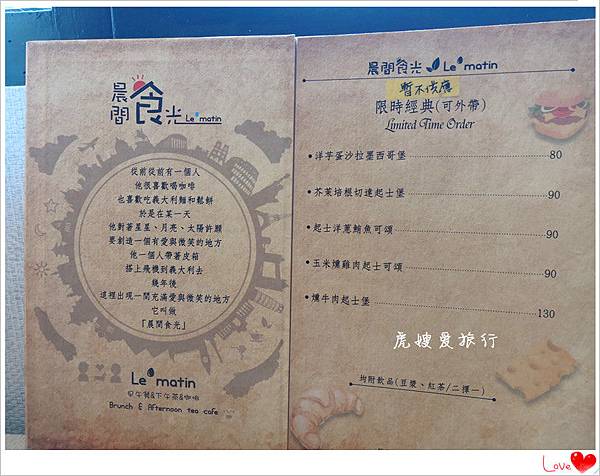 晨間食光 Le'matin
從前從前有一個人
他很喜歡喝咖啡
也喜歡吃義大利麵和鬆餅
於是在某一天
他對著星星、月亮、太陽許願
要創造一個有愛與微笑的地方
他一個人帶著皮箱
搭上飛機到義大利去
幾年後
這裡出現一間充滿愛與微笑的地方
它叫做
「晨間食光」
Le'matin
早午餐&下午茶&咖啡
Brunch & Afternoon tea cafe
晨間食光 Le'matin
暫不供應
限時經典(可外帶)
Limited Time Order
洋芋蛋沙拉墨西哥堡 80
芥茉培根切達起士堡 90
起士洋蔥鮪魚可頌 90
玉米燻雞肉起士可頌 90
燻牛肉起士堡 130
虎嫂愛旅行
均附飲品(豆漿、紅茶/二擇一)
Love